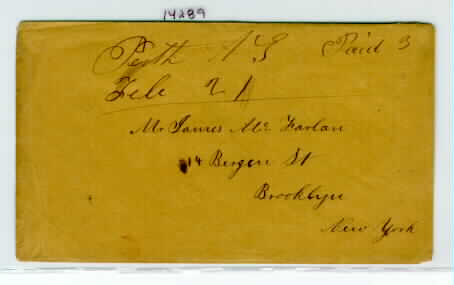 14289
Perth N Y Paid 3
Feb 21
Mr James Mc Farlan
14 Bergen St
Brooklyn
New York